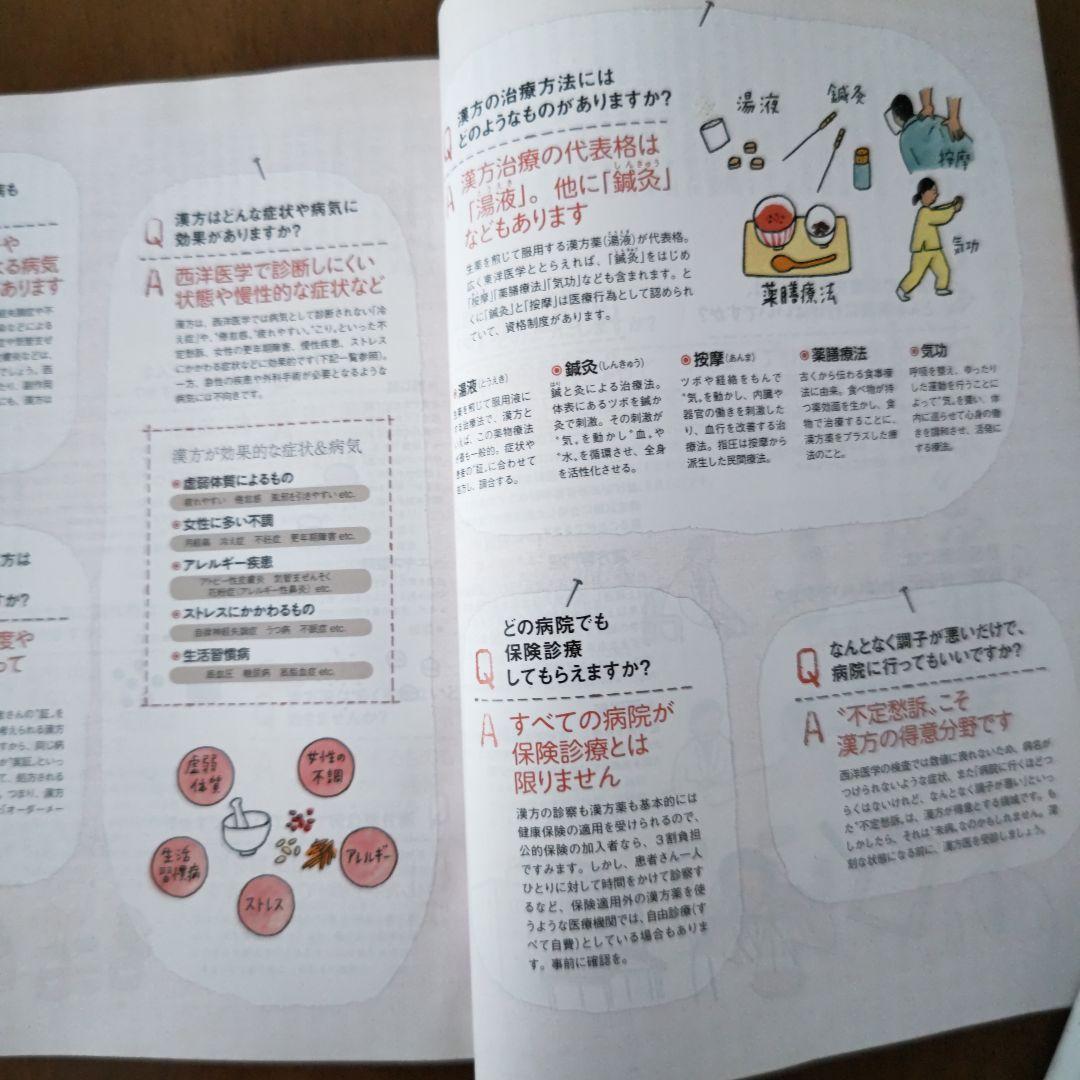 も
や
よる病気
あります
方は
すか？
度や
って
者さんの"証"を
考えられる漢方
すから、同じ病
が"実証"といっ
て、処方される
、つまり、漢方
「オーダーメー
Q 漢方はどんな症状や病気に
効果がありますか？
A 西洋医学で診断しにくい
状態や慢性的な症状など
漢方は、西洋医学では病気として診断されない「冷
え症」や、"倦怠感、"疲れやすい、"こり、といった不
定愁訴、女性の更年期障害、慢性疾患、ストレス
にかかわる症状などに効果的です(下記一覧参照)。
一方、急性の疾患や外科手術が必要となるような
病気には不向きです。
漢方が効果的な症状&病気
虚弱体質によるもの
疲れやすい 倦怠感 風邪を引きやすい etc.
女性に多い不調
月経痛 冷え症 不妊症 更年期障害 etc.
アレルギー疾患
アトピー性皮膚炎 気管支ぜんそく
花粉症(アレルギー性鼻炎) etc.
ストレスにかかわるもの
自律神経失調症 うつ病 不眠症 etc.
生活習慣病
高血圧 糖尿病 高脂血症 etc.
虚弱
体質
女性の
不調
生活
習慣病
アレルギー
ストレス
Q 漢方の治療方法には
どのようなものがありますか？
A 漢方治療の代表格は
「湯液」。他に「鍼灸」
などもあります
生薬を煎じて服用する漢方薬(湯液)が代表格。
広く東洋医学ととらえれば、「鍼灸」をはじめ
「按摩」「薬膳療法」「気功」なども含まれます。と
くに「鍼灸」と「按摩」は医療行為として認められ
ていて、資格制度があります。
湯液
鍼灸
按摩
薬膳療法
気功
湯液(とうえき)
生薬を煎じて服用液に
する治療法で、漢方と
いえば、この薬物療法
が最も一般的。症状や
患者の"証"に合わせて
処方し、調合する。
鍼灸(しんきゅう)
鍼と灸による治療法。
体表にあるツボを鍼か
灸で刺激。その刺激が
"気"を動かし"血"や
"水"を循環させ、全身
を活性化させる。
按摩(あんま)
ツボや経絡をもんで
"気"を動かし、内臓や
器官の働きを刺激した
り、血行を改善する治
療法。指圧は按摩から
派生した民間療法。
薬膳療法
古くから伝わる食事療
法に由来。食べ物が持
つ薬効面を生かし、食
物で治療することに、
漢方薬をプラスした療
法のこと。
気功
呼吸を整え、ゆったり
した運動を行うことに
よって"気"を養い、体
内に巡らせて心身の働
きを調和させ、活発に
する療法。
Q どの病院でも
保険診療
してもらえますか？
A すべての病院が
保険診療とは
限りません
漢方の診察も漢方薬も基本的には
健康保険の適用を受けられるので、
公的保険の加入者なら、３割負担
ですみます。しかし、患者さん一人
ひとりに対して時間をかけて診察す
るなど、保険適用外の漢方薬を使
うような医療機関では、自由診療(す
べて自費)としている場合もありま
す。事前に確認を。
Q なんとなく調子が悪いだけで、
病院に行ってもいいですか？
A "不定愁訴"こそ
漢方の得意分野です
西洋医学の検査では数値に表れないため、病名が
つけられないような症状、また「病院に行くほどつ
らくはないけれど、なんとなく調子が悪い」といっ
た"不定愁訴"は、漢方が得意とする領域です。も
しかしたら、それは"未病"なのかもしれません。深
刻な状態になる前に、漢方医を受診しましょう。